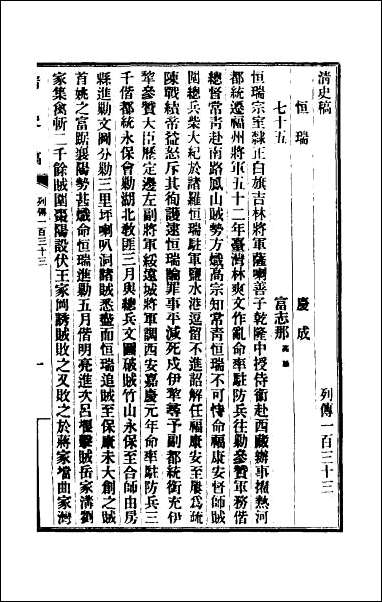 清史稿　列傳一百三十三
恒瑞　慶成
七十五　富志那
恒瑞宗室隸正白旗吉林將軍薩喇善子乾隆中授侍衛赴西藏辦事擢熱河
都統遷福州將軍五十二年臺灣林爽文作亂命率駐防兵往勦參贊軍務偕
總督常青赴南路鳳山賊勢方熾高宗知常青恒瑞不可恃命福康安督師賊
圍總兵柴大紀於諸羅恒瑞駐軍鹽水港逗留不進詔解任福康安至屢爲疏
陳戰績帝益怒斥其徇護逮恒瑞論罪事平減死戍伊犂尋予副都統銜充伊
犂參贊大臣歷定邊左副將軍綏遠城將軍調西安嘉慶元年命率駐防兵三
千偕都統永保會勦湖北教匪三月與總兵文圖破賊竹山永保至合師由房
縣進勦文圖分勦三里坪喇叭洞諸賊悉盡而恒瑞追賊至保康未大創之賊
首姚之富踞襄陽勢甚熾命恒瑞進勦五月偕明亮進次呂堰擊賊岳家溝劉
家集禽斬二千餘賊圍棗陽設伏王家岡誘賊敗之又敗之於蔣家壋曲家灣
清史稿　列傳一百三十三　一